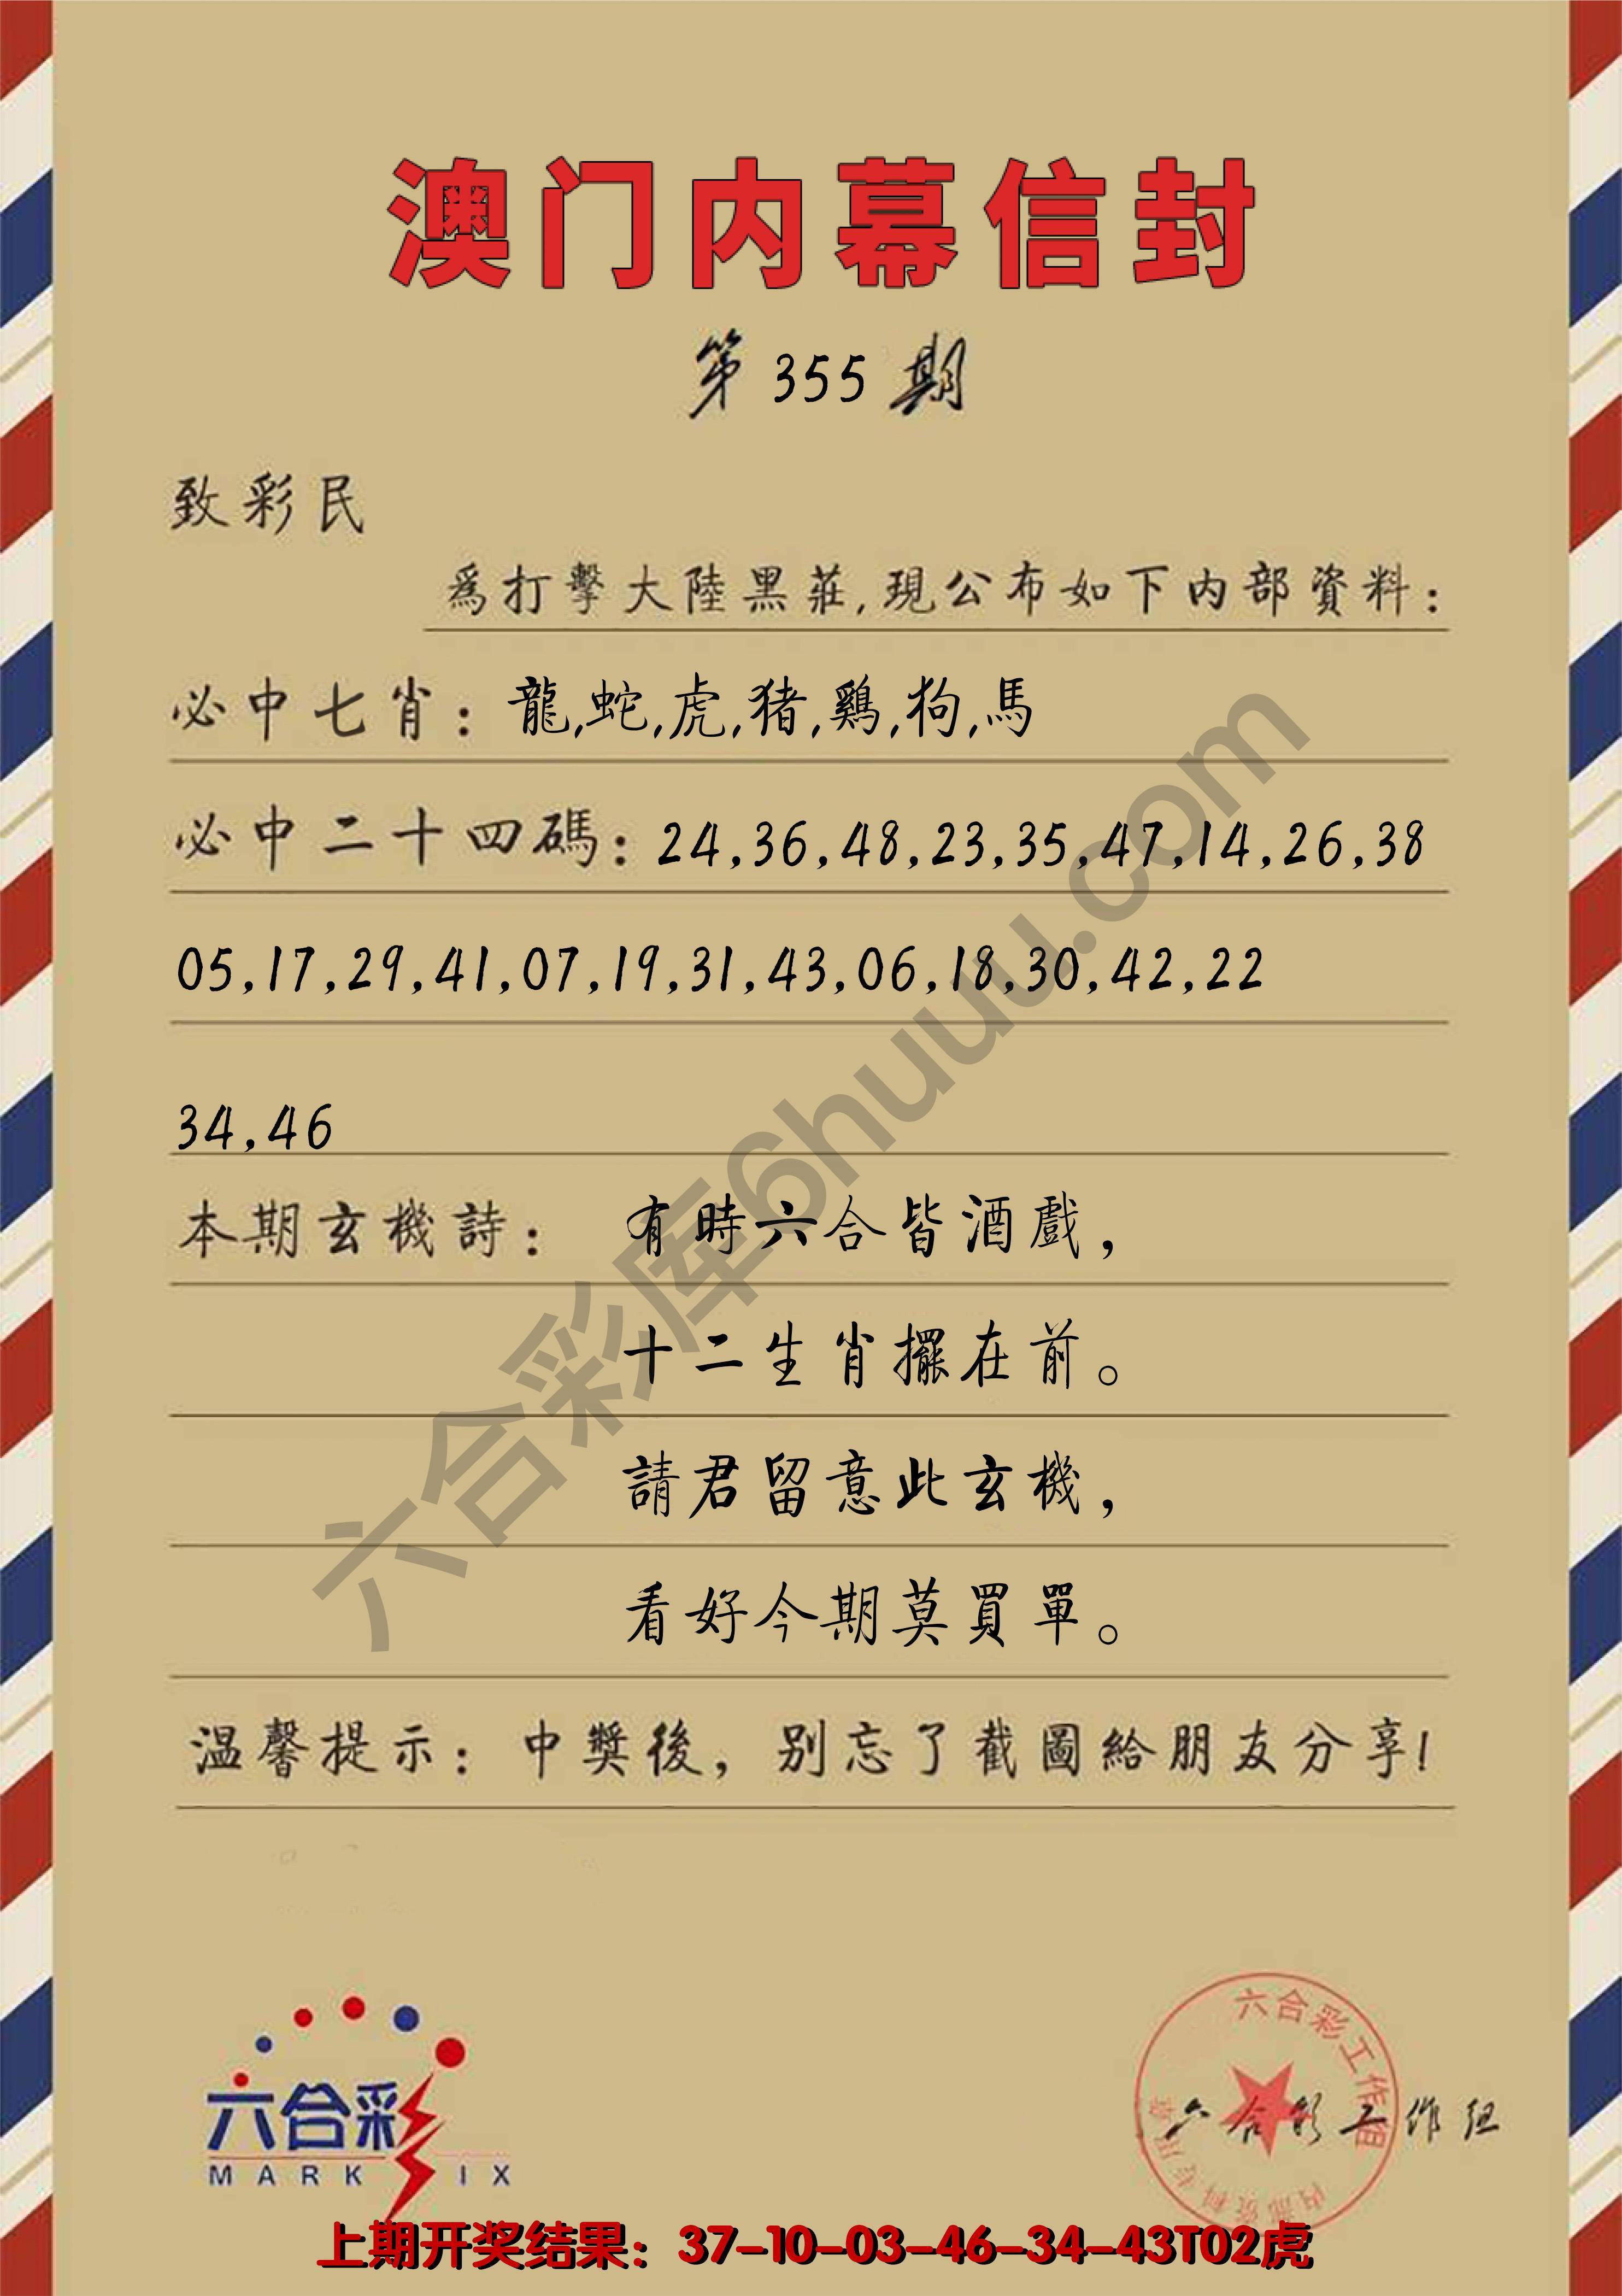 澳门内幕信封
第 355 期
致彩民
爲打擊大陸黑莊,現公布如下内部資料:
必中七肖: 龍,蛇,虎,猪,鷄,狗,馬
必中二十四碼: 24,36,48,23,35,47,14,26,38
05,17,29,41,07,19,31,43,06,18,30,42,22
34,46
本期玄機詩: 有時六合皆酒戲,
十二生肖擺在前。
請君留意此玄機,
看好今期莫買單。
温馨提示: 中獎後, 别忘了截圖給朋友分享!
六合彩库6huuu.com
六合彩
MARK SIX
六合彩工作组
内部资料专用章
六合彩工作组
上期开奖结果: 37-10-03-46-34-43T02虎